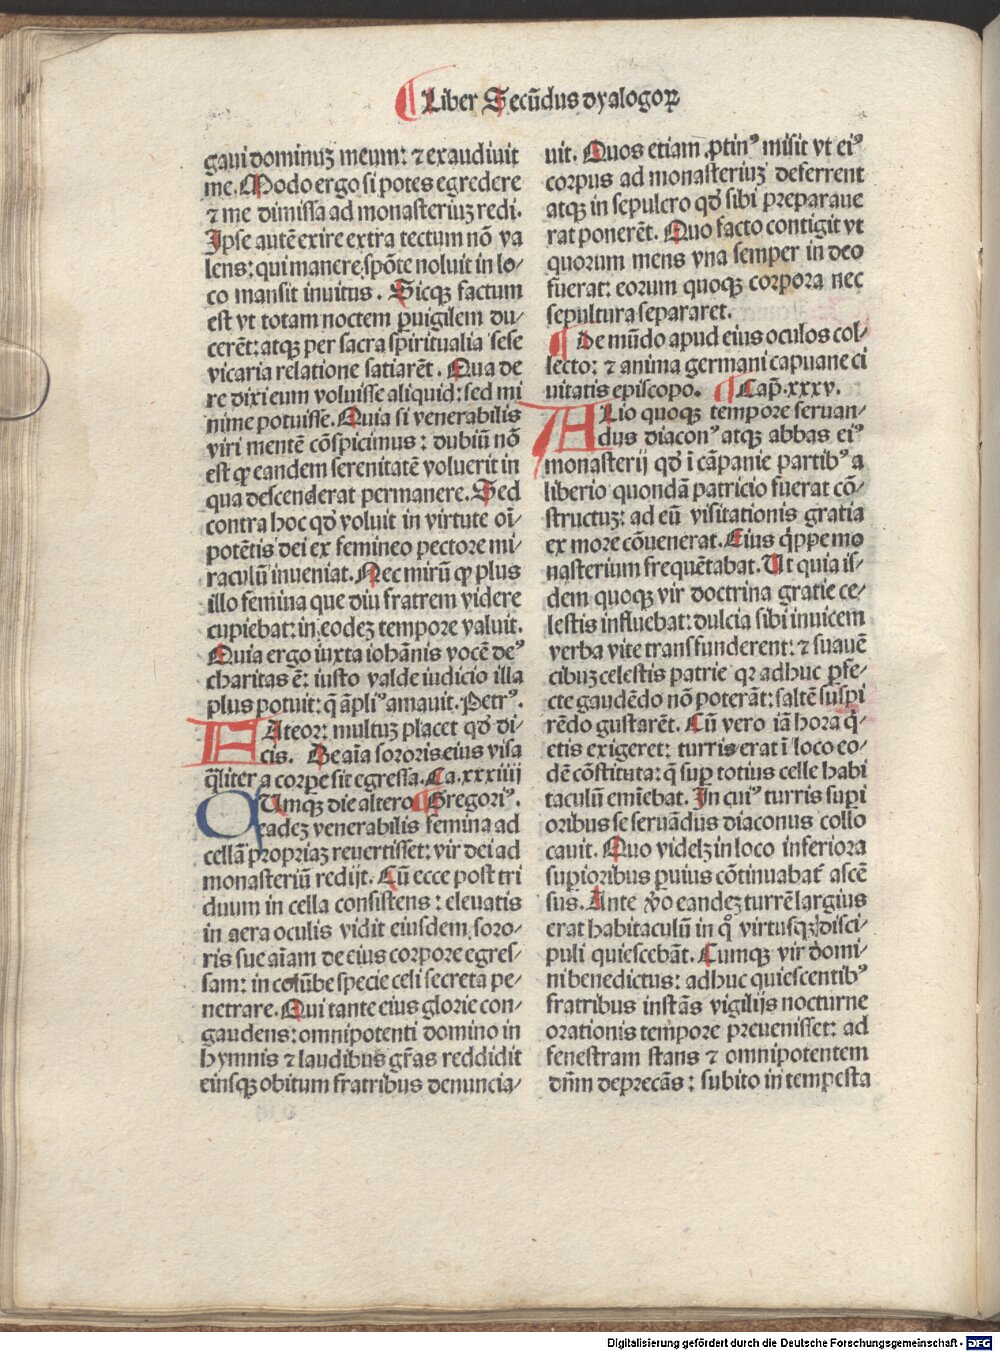 ¶ Liber Secūdus dyalogoꝝ
gaui dominuʒ meum: ⁊ exaudiuit
me. Modo ergo si potes egredere
⁊ me dimissa ad monasteriuʒ redi.
Ipse autē exire extra tectum nō va
lens: qui manere spōte noluit in lo⸗
co mansit inuitus. Sicqꝫ factum
est vt totam noctem ꝑuigilem du⸗
cerēt: atqꝫ per sacra spiritualia sese
vicaria relatione satiarēt. Qua de
re dixi eum voluisse aliquid: sed mi
nime potuisse. Quia si venerabilis
viri mentē cōspicimus: dubiū nō
est ꝙ eandem serenitatē voluerit in
qua descenderat permanere. Sed
contra hoc qđ voluit in virtute oī⸗
potētis dei ex femineo pectore mi⸗
raculū inueniat. Nec mirū ꝙ plus
illo femina que diu fratrem videre
cupiebat: in eodeʒ tempore valuit.
Quia ergo iuxta iohānis vocē deꝰ
charitas ē: iusto valde iudicio illa
plus potuit: q̄ āpliꝰ amauit. Petrꝰ.
FAteor: multuʒ placet qđ di⸗
cis. De aīa sororis eius visa
q̄liter a corpe sit egressa. Ca. xxxiiij
CUmqꝫ die altero ¶ Gregoriꝰ.
eadeʒ venerabilis femina ad
cellā propriaʒ reuertisset: vir dei ad
monasteriū redijt. Cū ecce post tri
duum in cella consistens: eleuatis
in aera oculis vidit eiusdem soro⸗
ris sue aīam de eius corpore egres⸗
sam: in colūbe specie celi secreta pe⸗
netrare. Qui tante eius glorie con⸗
gaudens: omnipotenti domino in
hymnis ⁊ laudibus gr̄as reddidit
eiusqꝫ obitum fratribus denuncia⸗
uit. Quos etiam ꝓtinꝰ misit vt eiꝰ
corpus ad monasteriuʒ deferrent
atqꝫ in sepulcro qđ sibi preparaue
rat ponerēt. Quo facto contigit vt
quorum mens vna semper in deo
fuerat: eorum quoqꝫ corpora nec
sepultura separaret.
¶ De mūdo apud eius oculos col⸗
lecto: ⁊ anima germani capuane ci
uitatis episcopo. ¶ Cap̄. xxxv.
ALio quoqꝫ tempore seruan⸗
dus diaconꝰ atqꝫ abbas eiꝰ
monasterij qđ ī cāpanie partibꝰ a
liberio quondā patricio fuerat cō⸗
structuʒ: ad eū visitationis gratia
ex more cōuenerat. Eius q̄ppe mo
nasterium frequētabat. Ut quia is⸗
dem quoqꝫ vir doctrina gratie ce⸗
lestis influebat: dulcia sibi inuicem
verba vite transfunderent: ⁊ suauē
cibuʒ celestis patrie qꝛ adhuc ꝑfe⸗
cte gaudēdo nō poterāt: saltē suspi
rēdo gustarēt. Cū vero iā hora q̇⸗
etis exigeret: turris erat ī loco eo⸗
dē cōstituta: q̄ suꝑ totius celle habi
taculū emīebat. In cuiꝰ turris suꝑi
oribus se seruādus diaconus collo
cauit. Quo videlʒ in loco inferiora
suꝑioribus ꝑuius cōtinuabat̄ ascē
sus. Ante v̊o eandeʒ turrē largius
erat habitaculū in q̊ virtusqꝫ disci⸗
puli quiescebāt. Cumqꝫ vir domi⸗
ni benedictus: adhuc quiescentibꝰ
fratribus instās vigilijs nocturne
orationis tempore preuenisset: ad
fenestram stans ⁊ omnipotentem
dn̄m deprecās: subito in tempesta
Digitalisierung gefördert durch die Deutsche Forschungsgemeinschaft - DFG